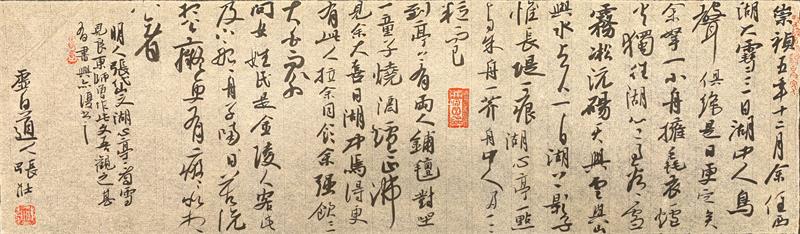 崇禎五年十二月余住西
湖大雪三日湖中人鳥
聲俱絕是日更定矣
余拏一小舟擁毳衣爐
火獨往湖心亭看雪
霧凇沆碭天與雲與山
與水上下一白湖上影子
惟長堤一痕湖心亭一點
與余舟一芥舟中人兩三
粒而已
到亭上有兩人鋪氈對坐
一童子燒酒爐正沸
見余大喜曰湖中焉得更
有此人拉余同飲余強飲三
大白而別
問其姓氏是金陵人客此
及下船舟子喃喃曰莫說
相公癡更有癡似相
公者
明人張岱文湖心亭看雪
見良東師曾作此文吾觀之甚
有書興亦
道人張